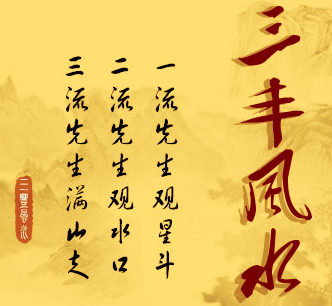 三丰風水
一流先生观星斗
二流先生观水口
三流先生满山走
三豐風水